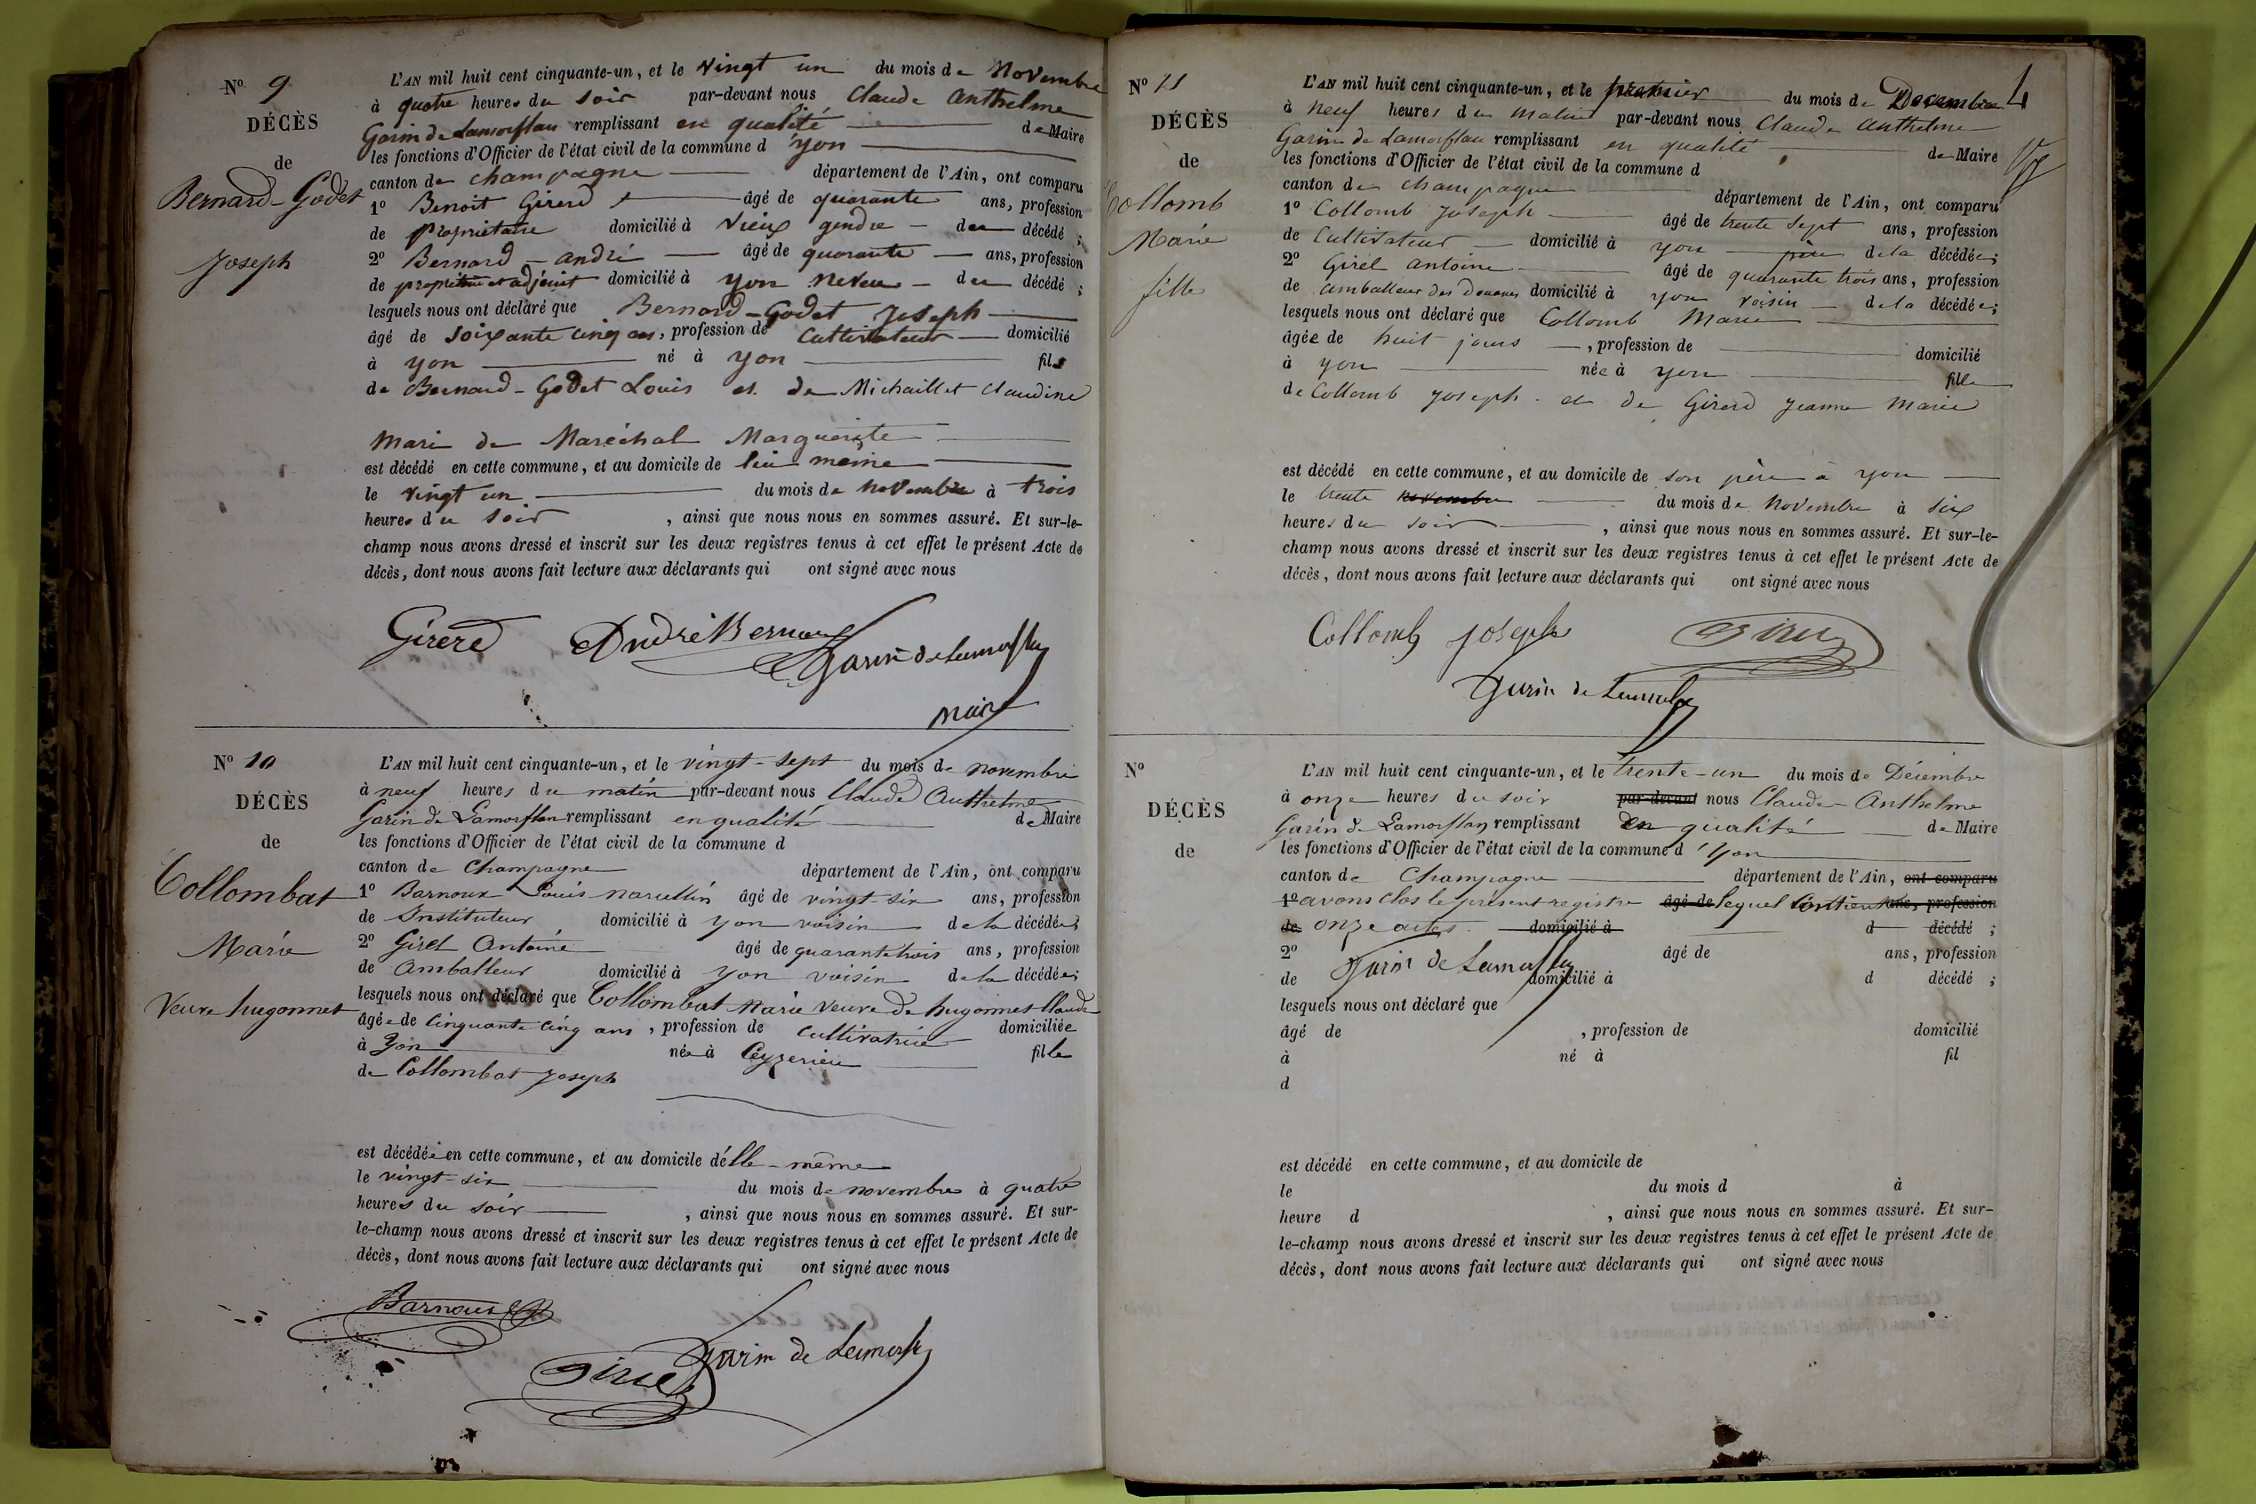 N° 9
DÉCÈS
de
Bernard-Godet
Joseph
L'AN mil huit cent cinquante-un, et le vingt un du mois de Novembre
à quatre heures du soir par-devant nous Claude Anthelme
Garin de Lamorflan remplissant en qualité de Maire
les fonctions d'Officier de l'état civil de la commune d'yon
canton de champagne département de l'Ain, ont comparu
1° Benoit Girerd âgé de quarante ans, profession
de propriétaire domicilié à Vieux gendre du décédé ;
2° Bernard-andré âgé de quarante ans, profession
de propriétaire et adjoint domicilié à yon neveu du décédé ;
lesquels nous ont déclaré que Bernard-Godet Joseph
âgé de soixante cinq ans, profession de cultivateur domicilié
à yon né à yon fils
de Bernard-Godet Louis et de Michaillet Claudine
Mari de Maréchal Marguerite
est décédé en cette commune, et au domicile de lui même
le vingt un du mois de novembre à trois
heures du soir , ainsi que nous nous en sommes assuré. Et sur-le-
champ nous avons dressé et inscrit sur les deux registres tenus à cet effet le présent Acte de
décès, dont nous avons fait lecture aux déclarants qui ont signé avec nous
Girerd André Bernard Garin de Lamorflan
Maire
N° 10
DÉCÈS
de
Collombat
Marie
Veuve hugonnet
L'AN mil huit cent cinquante-un, et le vingt-sept du mois de novembre
à neuf heures du matin par-devant nous Claude Anthelme
Garin de Lamorflan remplissant en qualité de Maire
les fonctions d'Officier de l'état civil de la commune d
canton de Champagne département de l'Ain, ont comparu
1° Barnoux Louis Marcellin âgé de vingt-six ans, profession
de Instituteur domicilié à yon voisin de la décédée ;
2° Girel Antoine âgé de quarante trois ans, profession
de Amballeur domicilié à yon voisin de la décédée ;
lesquels nous ont déclaré que Collombat Marie veuve de hugonnet Claude
âgée de cinquante cinq ans, profession de cultivatrice domiciliée
à Yon née à Ceyzerieu fille
de Collombat Joseph
est décédée en cette commune, et au domicile d'élle-même
le vingt-six du mois de novembre à quatre
heures du soir , ainsi que nous nous en sommes assuré. Et sur-
le-champ nous avons dressé et inscrit sur les deux registres tenus à cet effet le présent Acte de
décès, dont nous avons fait lecture aux déclarants qui ont signé avec nous
Barnoux
Girel Garin de Lamorflan
N° 11
DÉCÈS
de
Collomb
Marie
fille
L'AN mil huit cent cinquante-un, et le premier du mois de Decembre
à neuf heures du matin par-devant nous Claude Anthelme
Garin de Lamorflan remplissant en qualité de Maire
les fonctions d'Officier de l'état civil de la commune d
canton de champagne département de l'Ain, ont comparu
1° Collomb Joseph âgé de trente sept ans, profession
de Cultivateur domicilié à yon père de la décédée ;
2° Girel antoine âgé de quarante trois ans, profession
de amballeur des Douanes domicilié à yon voisin de la décédée ;
lesquels nous ont déclaré que Collomb Marie
âgée de huit jours , profession de domicilié
à yon née à yon fille
de Collomb Joseph et de Girerd Jeanne Marie
est décédé en cette commune, et au domicile de son père à yon
le trente novembre du mois de Novembre à six
heures du soir , ainsi que nous nous en sommes assuré. Et sur-le-
champ nous avons dressé et inscrit sur les deux registres tenus à cet effet le présent Acte de
décès, dont nous avons fait lecture aux déclarants qui ont signé avec nous
Collomb Joseph Girel
Garin de Lamorflan
N°
DÉCÈS
de
L'AN mil huit cent cinquante-un, et le trente-un du mois de Décembre
à onze heures du soir par-devant nous Claude-Anthelme
Garin de Lamorflan remplissant en qualité de Maire
les fonctions d'Officier de l'état civil de la commune d'Yon
canton de Champagne département de l'Ain, ont comparu
1° avons clos le présent registre âgé de lequel contient ans, profession
de onze actes. domicilié à d décédé ;
2° Garin de Lamorflan âgé de ans, profession
de domicilié à d décédé ;
lesquels nous ont déclaré que
âgé de , profession de domicilié
à né à fil
d
est décédé en cette commune, et au domicile de
le du mois d à
heure d , ainsi que nous nous en sommes assuré. Et sur-
le-champ nous avons dressé et inscrit sur les deux registres tenus à cet effet le présent Acte de
décès, dont nous avons fait lecture aux déclarants qui ont signé avec nous